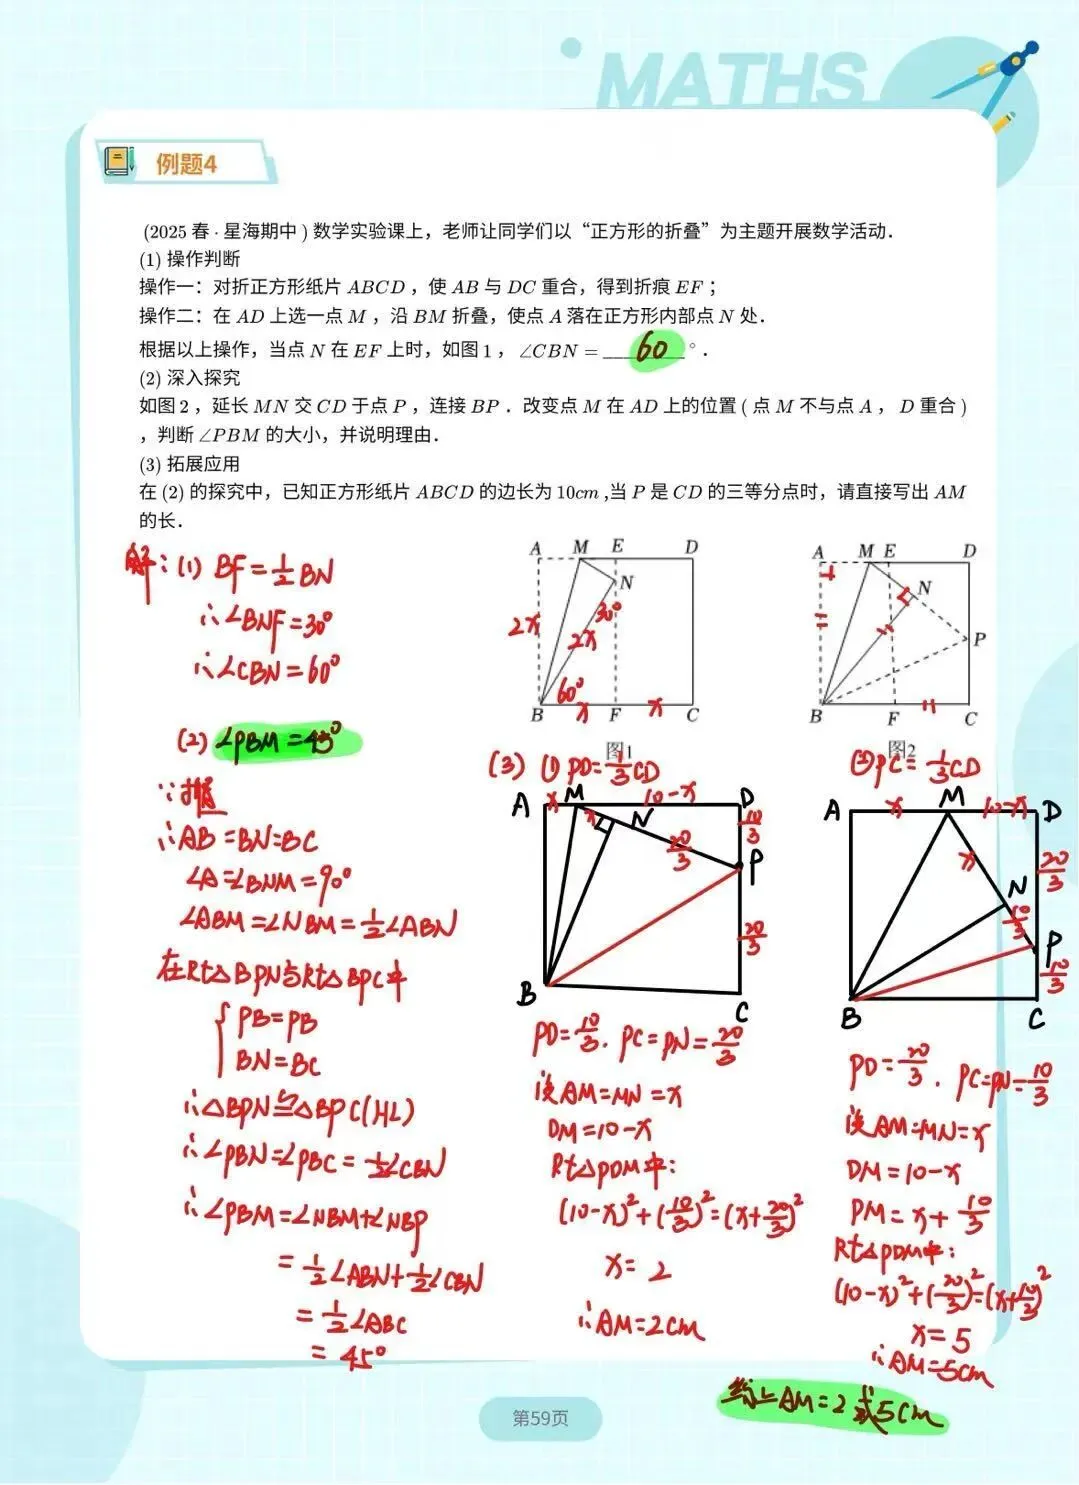 MATHS
例题4
(2025 春 · 星海期中 ) 数学实验课上，老师让同学们以“正方形的折叠”为主题开展数学活动．
(1) 操作判断
操作一：对折正方形纸片 ABCD ，使 AB 与 DC 重合，得到折痕 EF ；
操作二：在 AD 上选一点 M ，沿 BM 折叠，使点 A 落在正方形内部点 N 处．
根据以上操作，当点 N 在 EF 上时，如图 1 ， ∠CBN = 60 ° ．
(2) 深入探究
如图 2 ，延长 MN 交 CD 于点 P ，连接 BP ．改变点 M 在 AD 上的位置 ( 点 M 不与点 A ， D 重合 )
，判断 ∠PBM 的大小，并说明理由．
(3) 拓展应用
在 (2) 的探究中，已知正方形纸片 ABCD 的边长为 10cm ,当 P 是 CD 的三等分点时，请直接写出 AM
的长．
解：(1) BF=1/2BN
∴∠BNF=30°
∴∠CBN=60°
A M E D
N
30°
2x
2x
60°
x x
B F C
图1
A M E D
N
P
B F C
图2
(2) ∠PBM=45°
∴AB=BN=BC
∠A=∠BNM=90°
∠ABM=∠NBM=1/2∠ABN
在Rt△BPN与Rt△BPC中
{PB=PB
BN=BC
∴△BPN≌△BPC(HL)
∴∠PBN=∠PBC=1/2∠CBN
∴∠PBM=∠NBM+∠NBP
=1/2∠ABN+1/2∠CBN
=1/2∠ABC
=45°
(3) ① PD=1/3CD
A x M 10-x D
x N 10/3
20/3 P
20/3
B C
PD=10/3. PC=PN=20/3
设AM=MN=x
DM=10-x
Rt△PDM中:
(10-x)²+(10/3)²=(x+20/3)²
x=2
∴AM=2cm
② PC=1/3CD
A x M 10-x D
x 20/3
N
10/3 P
10/3
B C
PD=20/3. PC=PN=10/3
设AM=MN=x
DM=10-x
PM=x+10/3
Rt△PDM中:
(10-x)²+(20/3)²=(x+10/3)²
x=5
∴AM=5cm
综上AM=2或5cm
第59页